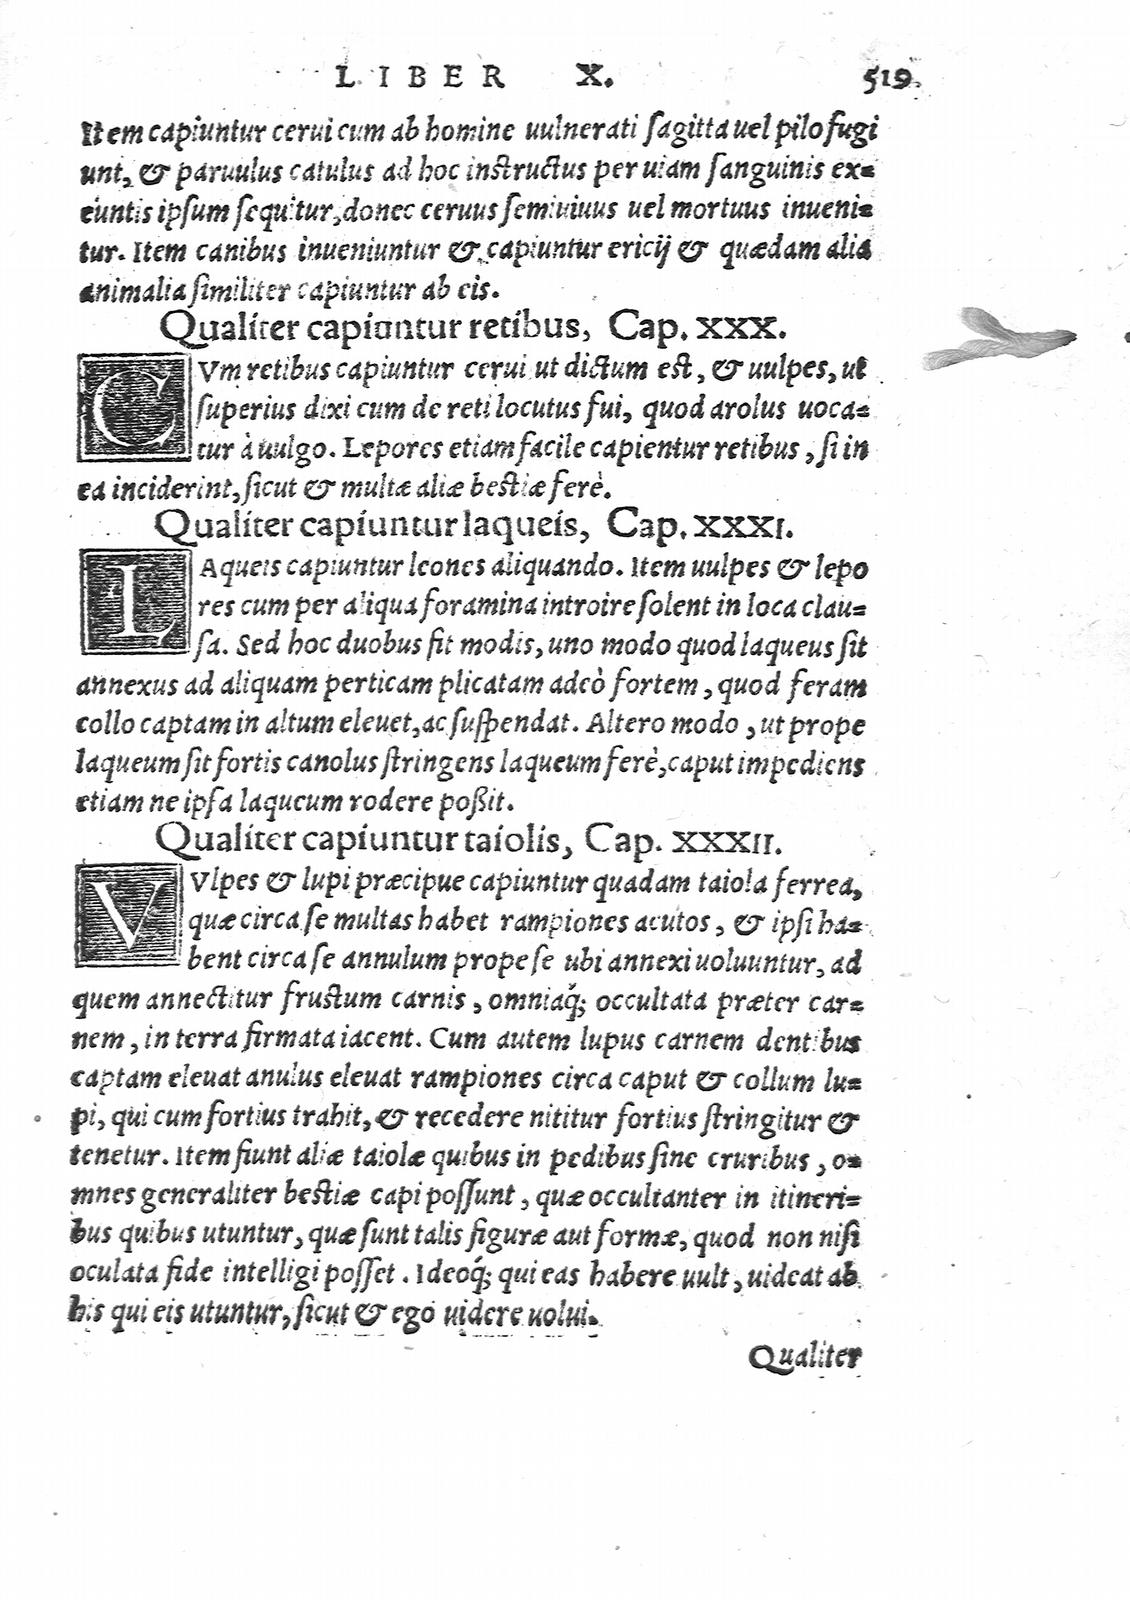 LIBER X. 519
Item capiuntur cerui cum ab homine uulnerati ſagitta uel pilo fugi
unt, & paruulus catulus ad hoc inſtructus per uiam ſanguinis ex=
euntis ipſum ſequitur, donec ceruus ſemiuiuus uel mortuus inueni=
tur. Item canibus inueniuntur & capiuntur ericij & quædam alia
animalia ſimiliter capiuntur ab eis.
Qualiter capiuntur retibus, Cap. XXX.
CVm retibus capiuntur cerui ut dictum eſt, & uulpes, ut
ſuperius dixi cum de reti locutus fui, quod arolus uoca=
tur à uulgo. Lepores etiam facile capientur retibus, ſi in
ea inciderint, ſicut & multæ aliæ beſtiæ ferè.
Qualiter capiuntur laqueis, Cap. XXXI.
LAqueis capiuntur leones aliquando. Item uulpes & lepo
res cum per aliqua foramina introire ſolent in loca clau=
ſa. Sed hoc duobus fit modis, uno modo quod laqueus ſit
annexus ad aliquam perticam plicatam adeò fortem, quod feram
collo captam in altum eleuet, ac ſuſpendat. Altero modo, ut prope
laqueum ſit fortis canolus ſtringens laqueum ferè, caput impediens
etiam ne ipſa laqueum rodere poßit.
Qualiter capiuntur taiolis, Cap. XXXII.
VVlpes & lupi præcipue capiuntur quadam taiola ferrea,
quæ circa ſe multas habet rampiones acutos, & ipſi ha=
bent circa ſe annulum prope ſe ubi annexi uoluuntur, ad
quem annectitur fruſtum carnis, omniaq́; occultata præter car=
nem, in terra firmata iacent. Cum autem lupus carnem dentibus
captam eleuat anulus eleuat rampiones circa caput & collum lu=
pi, qui cum fortius trahit, & recedere nititur fortius ſtringitur &
tenetur. Item fiunt aliæ taiolæ quibus in pedibus ſine cruribus, o=
mnes generaliter beſtiæ capi poſſunt, quæ occultanter in itineri=
bus quibus utuntur, quæ ſunt talis figuræ aut formæ, quod non niſi
oculata fide intelligi poſſet. Ideoq́; qui eas habere uult, uideat ab
his qui eis utuntur, ſicut & ego uidere uolui.
Qualiter